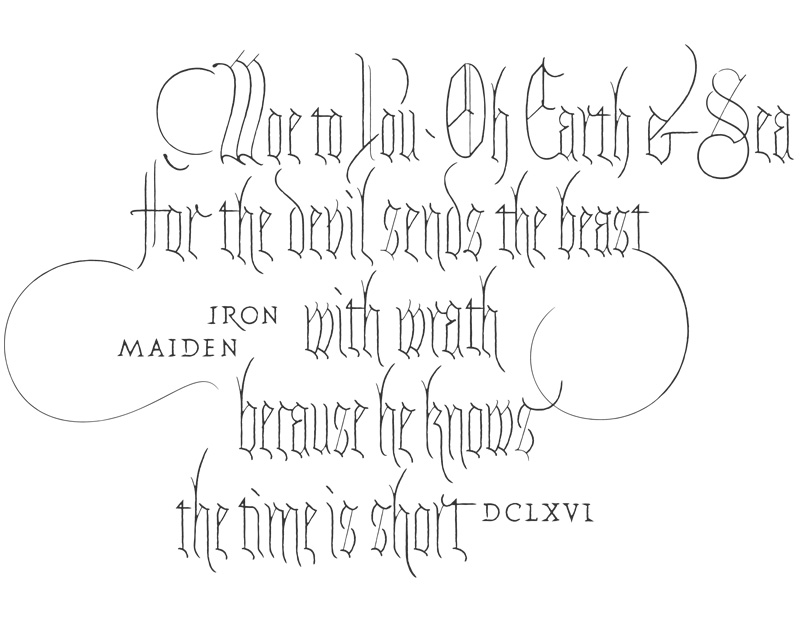 Woe to You · Oh Earth & Sea
For the devil sends the beast
IRON
MAIDEN
with wrath
because he knows
the time is short
DCLXVI